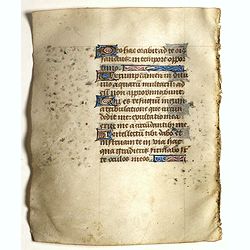 Pro hac orabit ad te omnis
sanctus: in tempore oppor
tuno.
Verumptamen in dilu
uio aquarum multarum: ad
eum non approximabunt.
Tu es refugium meum
a tribulatione que circum
dedit me: exultatio mea
erue me a circundantibus me.
Intellectum tibi dabo et
instruam te in uia hac
qua gradieris: firmabo su
per te oculos meos.